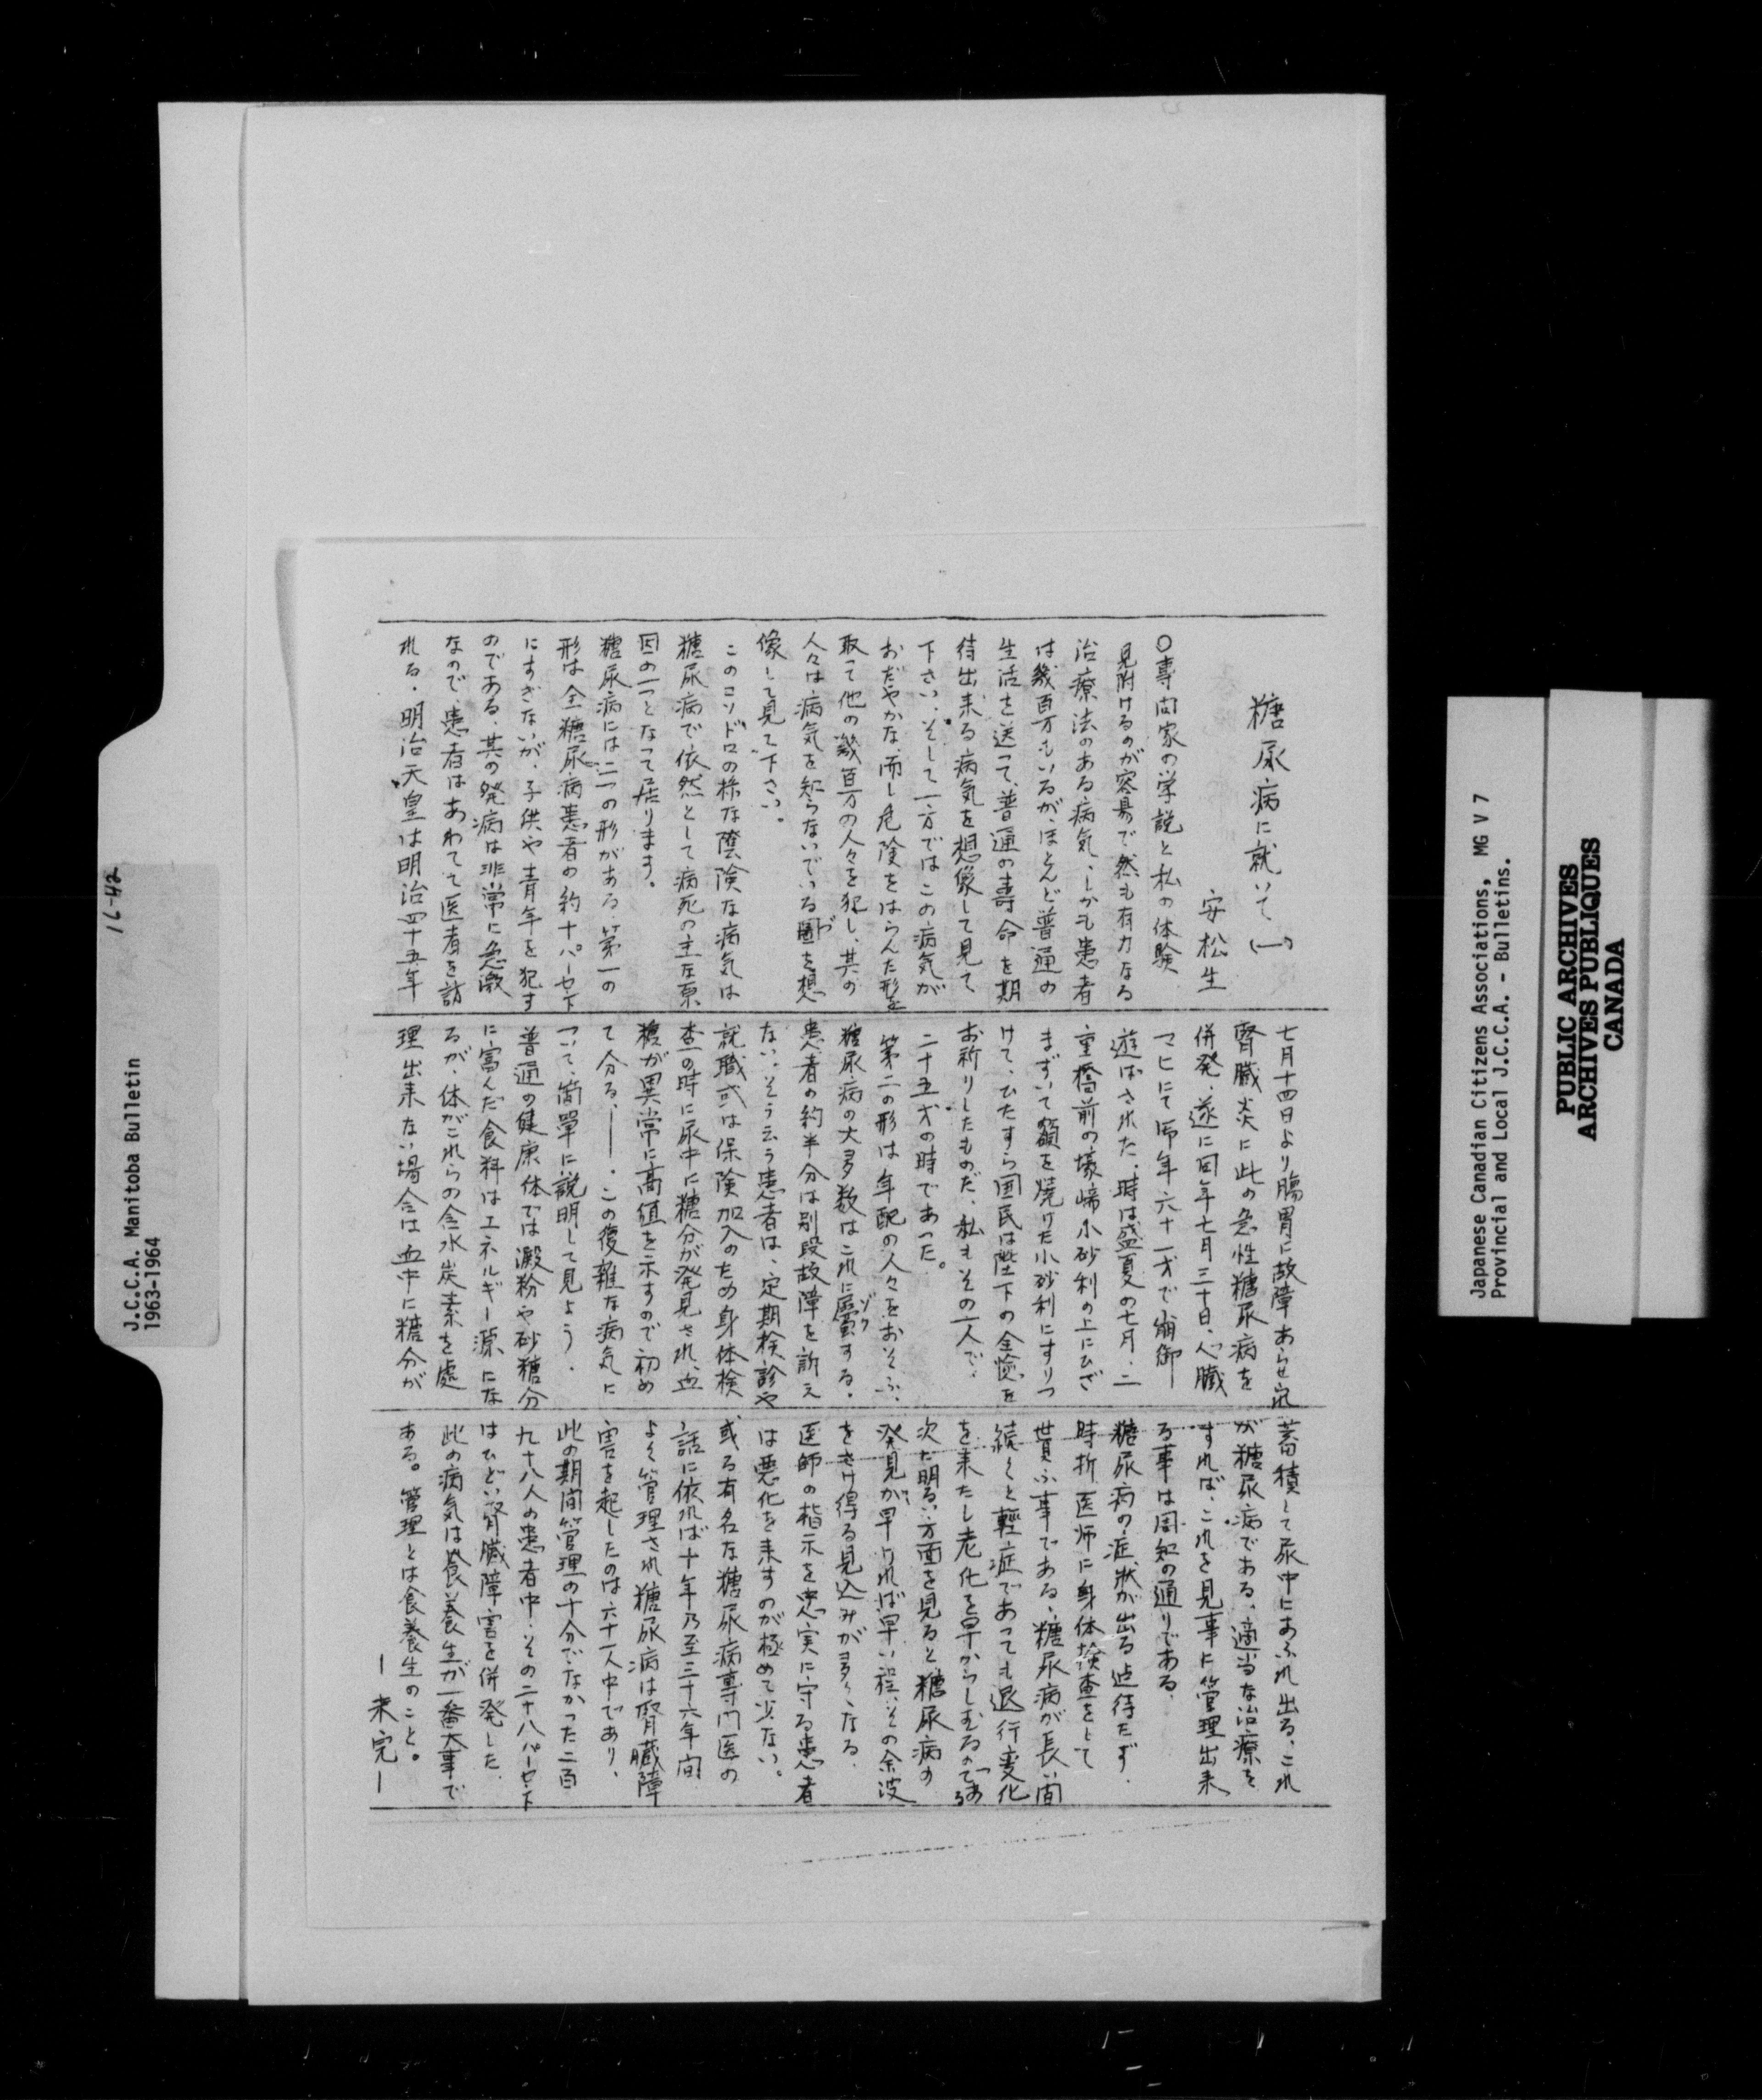 糖尿病に就いて(一)
安松生
○専門家の学説と私の体験
見附けるのが容易で然も有力なる
治療法のある病気、しかも患者
は幾百万もいるが、ほとんど普通の
生活を送って、普通の寿命を期
待出来る病気を想像して見て
下さい、そして一方ではこの病気が
おだやかな、而し危険をはらんだ形を
取って他の幾百万の人々を犯し、其の
人々は病気を知らないでいる圖を想
像して見て下さい。
このコソドロの様な陰険な病気は
糖尿病で依然として病死の主な原
因の一つとなって居ります。
糖尿病には二つの形がある、第一の
形は全糖尿病患者の約十パーセント
にすぎないが、子供や青年を犯す
のである、其の発病は非常に急激
なので、患者はあわてて医者を訪
れる、明治天皇は明治四十五年
七月十四日より腸胃に故障あらせられ
腎臓炎に此の急性糖尿病を
併発、遂に同年七月三十日、心臓
マヒにて御年六十一才で崩御
遊ばされた、時は盛夏の七月、二
重橋前の壕端小砂利の上にひざ
まずいて額を焼けた小砂利にすりつ
けて、ひたすら国民は陛下の全愈を
お祈りしたものだ、私もその一人で、
二十五才の時であった。
第二の形は年配の人々をおそふ、
糖尿病の大多数はこれに屬する。
ゾク
患者の約半分は別段故障を訴え
ない、そう云う患者は、定期検診や
就職或は保険加入のため身体検
査の時に尿中に糖分が発見され、血
糖が異常に高値を示すので初め
て分る、――.この複雑な病気に
ついて、簡單に説明して見よう.
普通の健康体では澱粉や砂糖分
に富んだ食料はエネルギー源にな
るが、体がこれらの含水炭素を處
理出来ない場合は血中に糖分が
蓄積して尿中にあふれ出る、これ
が糖尿病である、適当な治療を
すれば、これを見事に管理出来
る事は周知の通りである、
糖尿病の症状が出る迄待たず、
時折医師に身体検査をして
貰ふ事である、糖尿病が長い間
続くと軽症であっても退行変化
を来たし老化を早からしむるのである
次に明るい方面を見ると糖尿病の
発見が早ければ早い程、その余波
をさけ得る見込みが多くなる.
医師の指示を忠実に守る患者
は悪化を来すのが極めて少ない。
或る有名な糖尿病専門医の
話に依れば十年乃至三十六年間
よく管理され糖尿病は腎臓障
害を起したのは六十一人中であり、
此の期間管理の十分でなかった二百
九十八人の患者中、その二十八パーセント
はひどい腎臓障害を併発した.
此の病気は食養生が一番大事で
ある。管理とは食養生のこと。
ー未完ー
J.C.C.A. Manitoba Bulletin
1963-1964
Japanese Canadian Citizens Associations, MG V 7
Provincial and Local J.C.C.A. - Bulletins.
PUBLIC ARCHIVES
ARCHIVES PUBLIQUES
CANADA